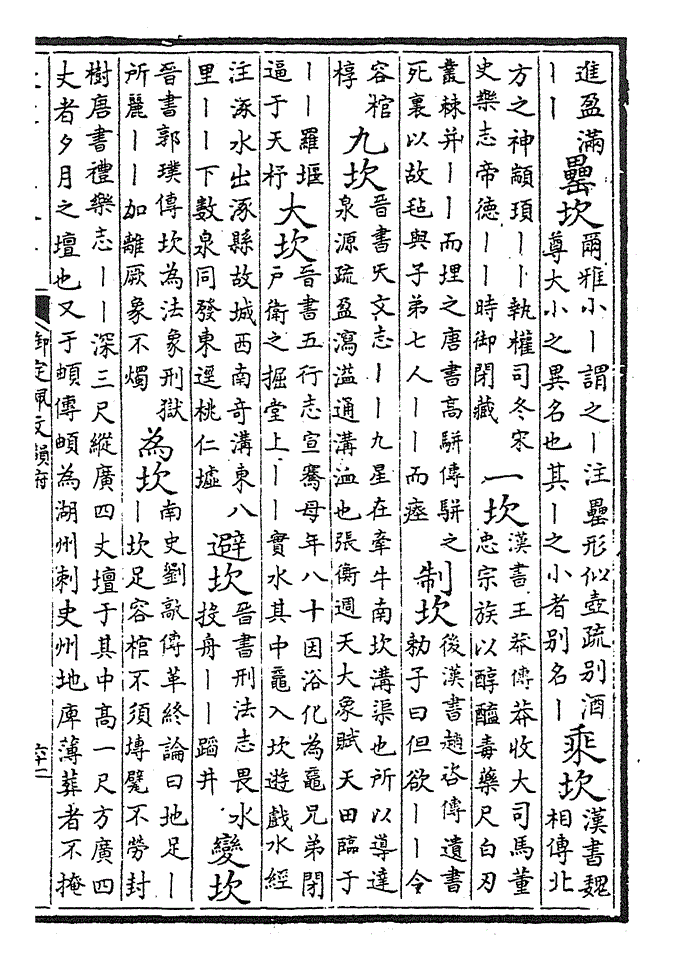 進盈滿
——
罍坎
爾雅小—謂之—注罍形似壺疏别酒
尊大小之異名也其—之小者别名—
乘坎
漢書魏
相傳北
方之神顓頊——執權司冬宋
史樂志帝德——時御閉藏
一坎
漢書王莽傳莽收大司馬董
忠宗族以醇醯毒藥尺白刃
叢棘并——而埋之唐書高駢傳駢之
死裏以故毡與子弟七人——而瘞
制坎
後漢書趙咨傳遺書
勑子曰但欲——令
容棺
椁
九坎
晉書天文志——九星在牽牛南坎溝渠也所以導達
泉源疏盈瀉溢通溝洫也張衡週天大象賦天田臨于
——羅堰
逼于天杼
大坎
晉書五行志宣騫母年八十因浴化為黿兄弟閉
戶衛之掘堂上——實水其中黿入坎遊戲水經
注涿水出涿縣故城西南奇溝東八
里——下數泉同發東逕桃仁墟
避坎
晉書刑法志畏水
投舟——蹈井
變坎
晉書郭璞傳坎為法象刑獄
所麗——加離厥象不燭
為坎
南史劉歊傳革終論曰地足—
—坎足容棺不須塼甓不勞封
樹唐書禮樂志——深三尺縱廣四丈壇于其中高一尺方廣四
丈者夕月之壇也又于頔傳頔為湖州刺史州地庳薄葬者不掩
御定佩文韻府